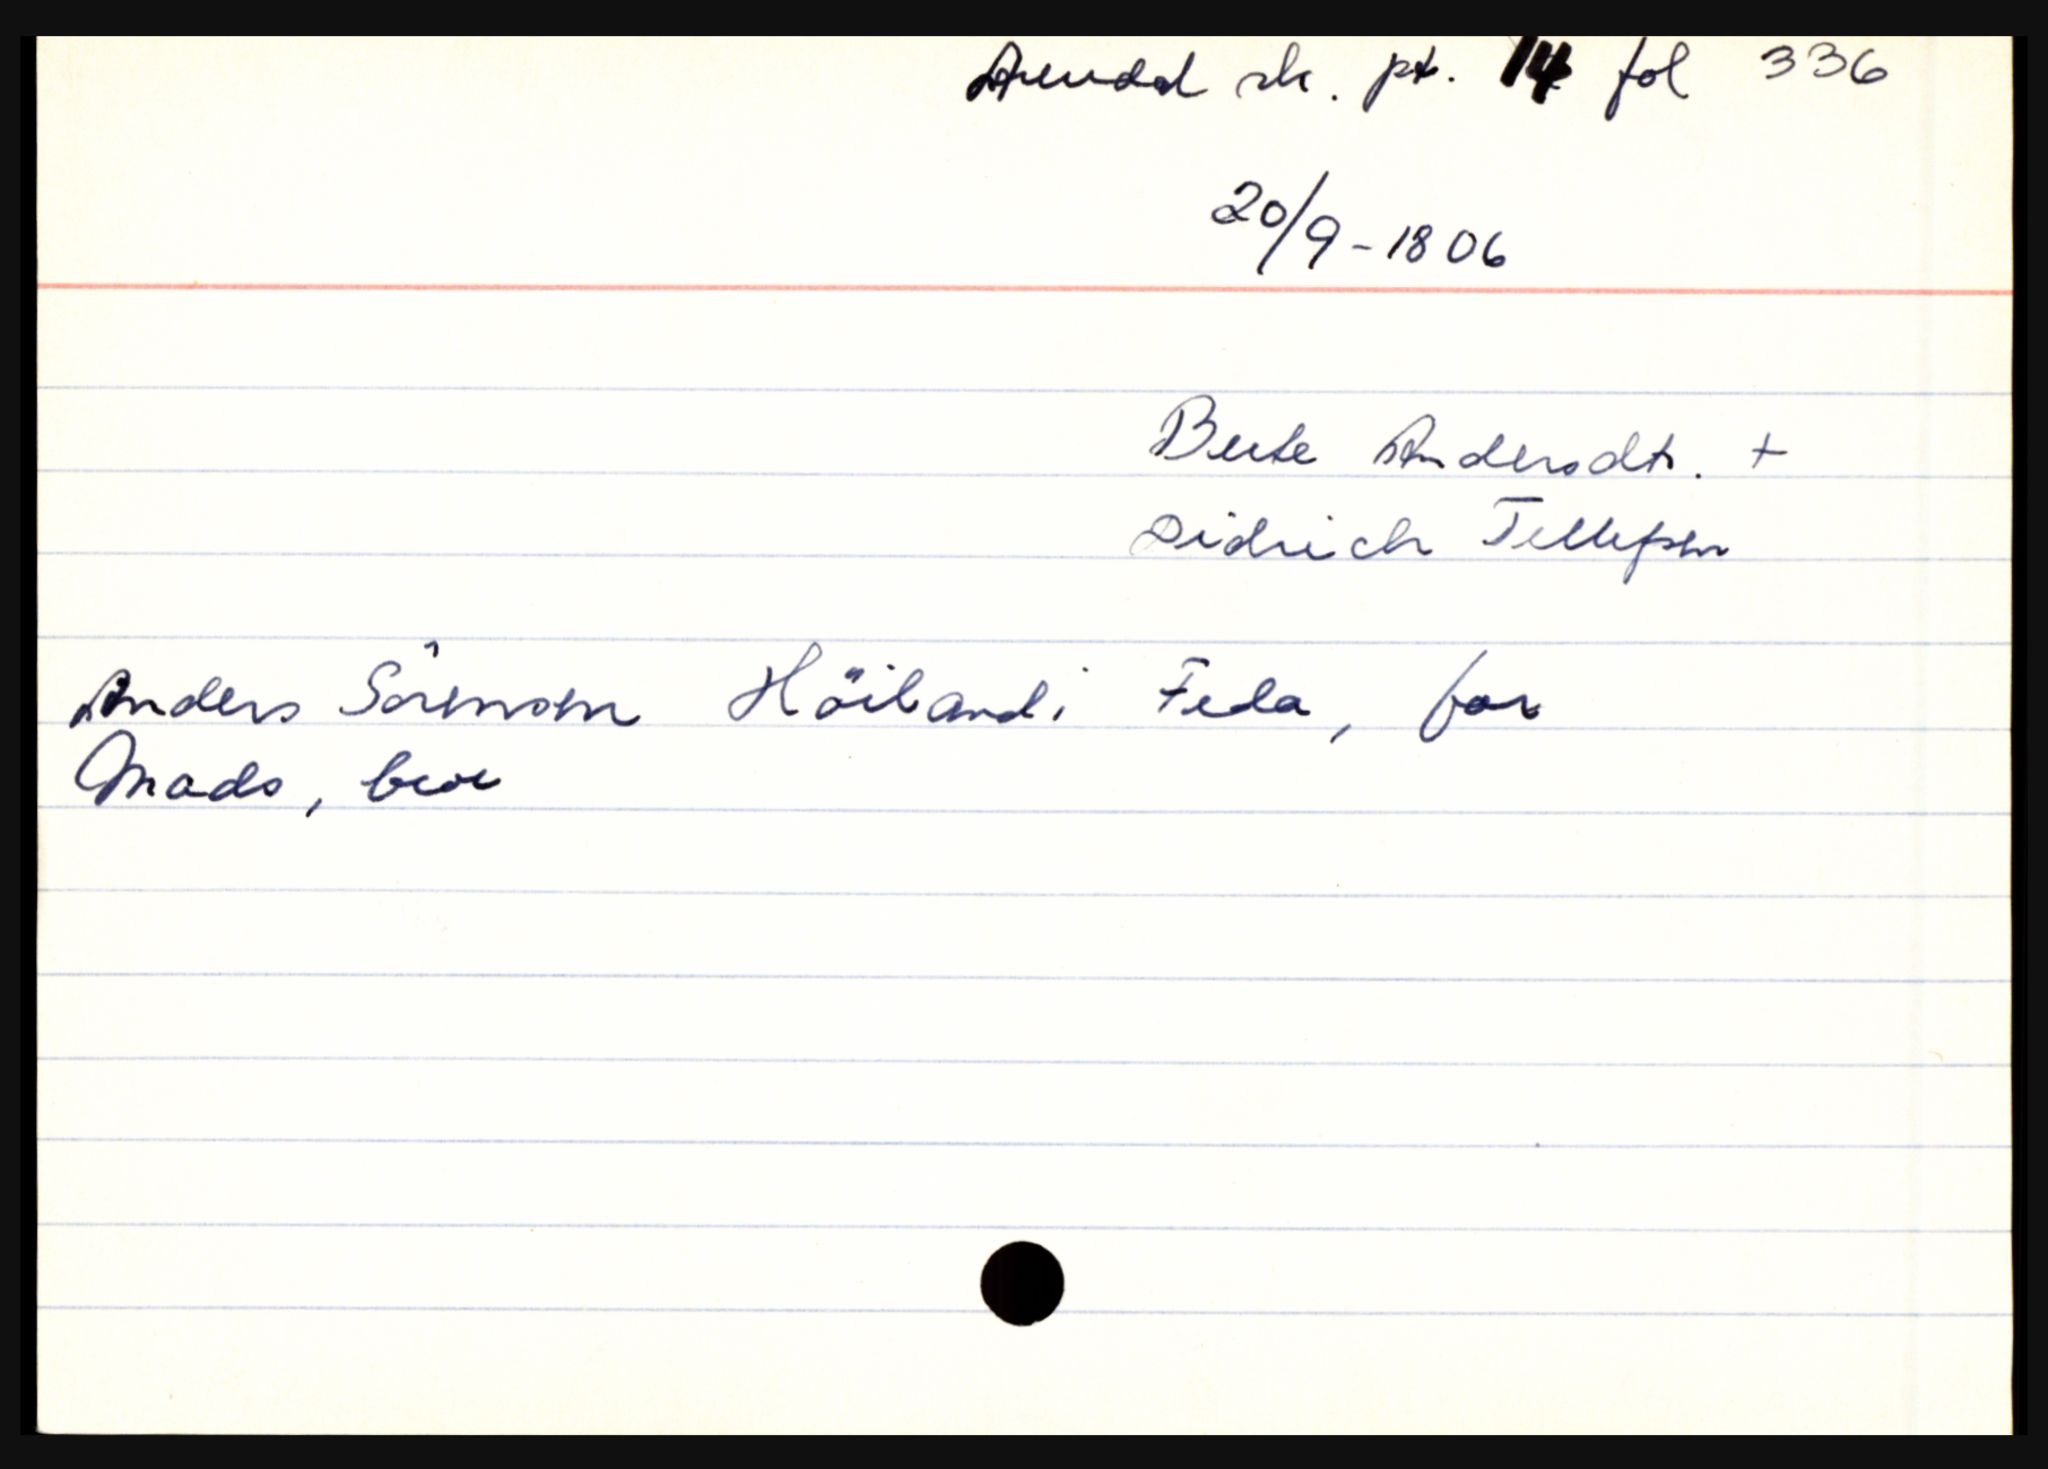 Arendal sk. pt. 14 fol 336
20/9-1806
Berte Andersdtr. +
Didrich Tellefsen
Anders Sörensen Höiland i Feda, far
Mads, bror